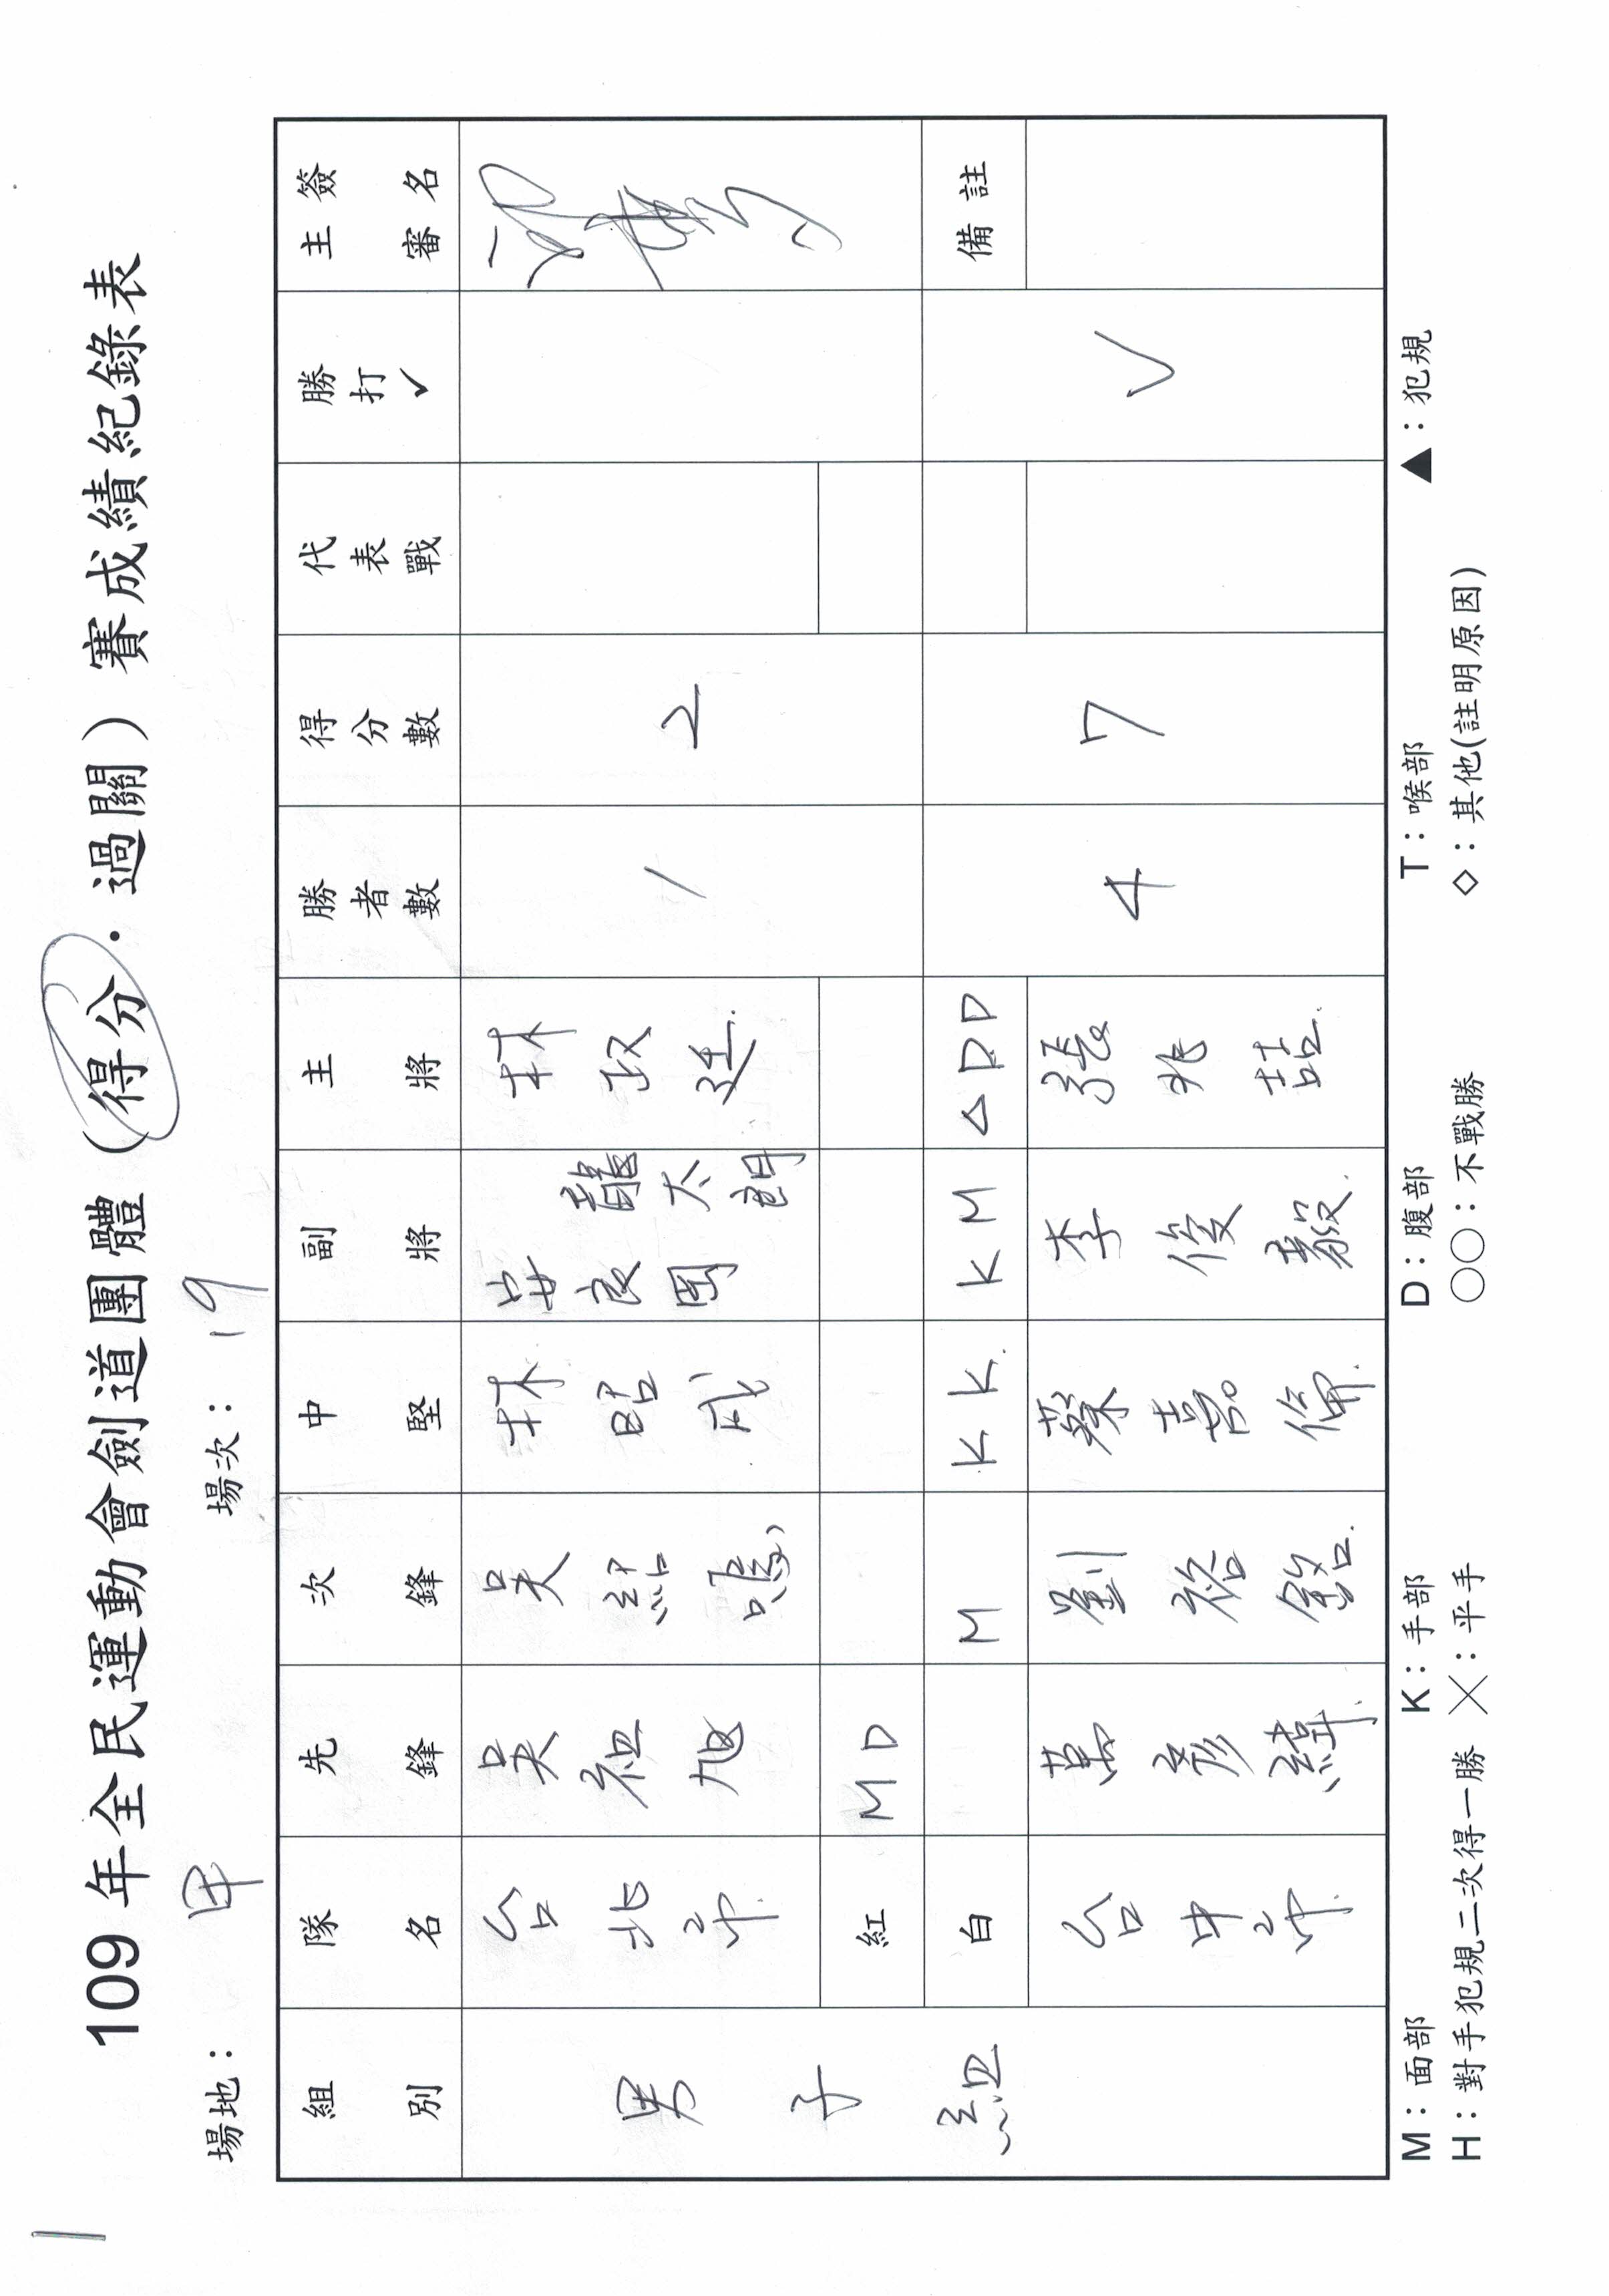 109 年全民運動會劍道團體（得分．過關）賽成績紀錄表
場地： 甲 場次： 19
組別 隊名 先鋒 次鋒 中堅 副將 主將 勝者數 得分數 代表戰 勝打✓ 主審簽名
男子組 台北市 吳祖旭 吳紹 林昭成 安良岡龍太朗 林政廷 1 2
紅 M D
白 M K K K M △ D D 備註
台中市 萬彥緯 劉裕銘 蔡嘉倫 李俊毅 張兆喆 4 7 ✓
M：面部 K：手部 D：腹部 T：喉部 ▲：犯規
H：對手犯規二次得一勝 ╳：平手 ○○：不戰勝 ◇：其他(註明原因)